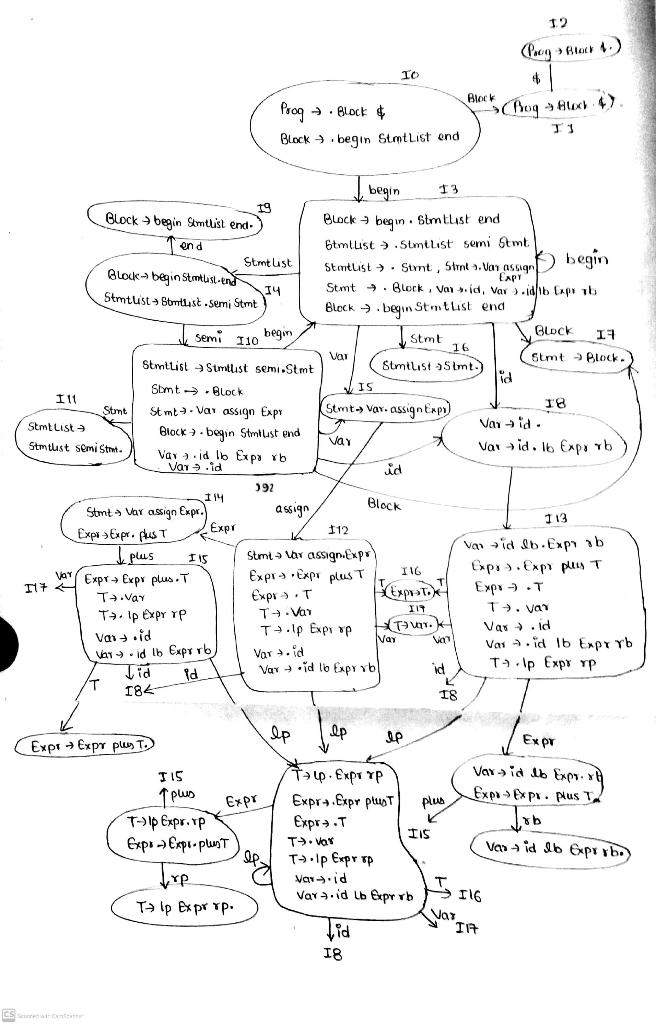 I2
Prog → Block $.
$
I0
Prog → . Block $
Block → . begin StmtList end
Block
Prog → Block . $
I1
begin
I3
Block → begin . StmtList end
StmtList → . StmtList semi Stmt
StmtList → . Stmt , Stmt → . Var assign
Expr
Stmt → . Block , Var → . id, Var → . id lb Expr rb
Block → . begin StmtList end
begin
I9
Block → begin StmtList end.
end
StmtList
Block → begin StmtList . end
StmtList → StmtList . semi Stmt
I4
semi
I10
begin
StmtList → StmtList semi . Stmt
Stmt → . Block
Stmt → . Var assign Expr
Block → . begin StmtList end
Var → . id lb Expr rb
Var → . id
Var
Stmt
I6
StmtList → Stmt.
Block
I7
Stmt → Block.
id
I5
Stmt → Var . assign Expr
Var
I8
Var → id .
Var → id . lb Expr rb
I11
Stmt
StmtList →
StmtList semi Stmt.
id
Block
assign
I14
Stmt → Var assign Expr.
Expr → Expr . plus T
Expr
plus
I15
Var
I17
Expr → Expr plus . T
T → . Var
T → . lp Expr rp
Var → . id
Var → . id lb Expr rb
T
id
I8
id
Expr → Expr plus T.
I12
Stmt → Var assign . Expr
Expr → . Expr plus T
Expr → . T
T → . Var
T → . lp Expr rp
Var → . id
Var → . id lb Expr rb
I16
T
Expr → T.
T
T → Var.
Var
Var
I13
Var → id lb . Expr rb
Expr → . Expr plus T
Expr → . T
T → . var
Var → . id
Var → . id lb Expr rb
T → . lp Expr rp
id
I8
lp
lp
lp
Expr
Var → id lb Expr . rb
Expr → Expr . plus T
plus
I15
rb
Var → id lb Expr rb.
T → lp . Expr rp
Expr → . Expr plus T
Expr → . T
T → . var
T → . lp Expr rp
Var → . id
Var → . id lb Expr rb
lp
Expr
I15
plus
T → lp Expr . rp
Expr → Expr . plus T
rp
T → lp Expr rp.
T
I16
Var
I17
id
I8
CS Scanned with CamScanner